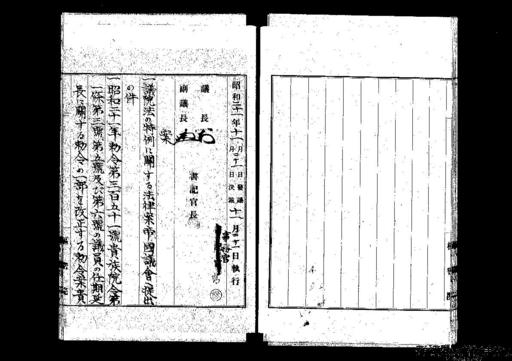 昭和二十一年十一月二十一日發議
月 日決裁 十一月二十一日執行
議長
副議長
書記官長
案
一議院法の特例に關する法律案帝國議會へ提出
の件
一昭和二十一年勅令第三百五十一號貴族院令第
一條第三號第五號及び第六號の議員の任期延
長に關する勅令の一部を改正する勅令案貴